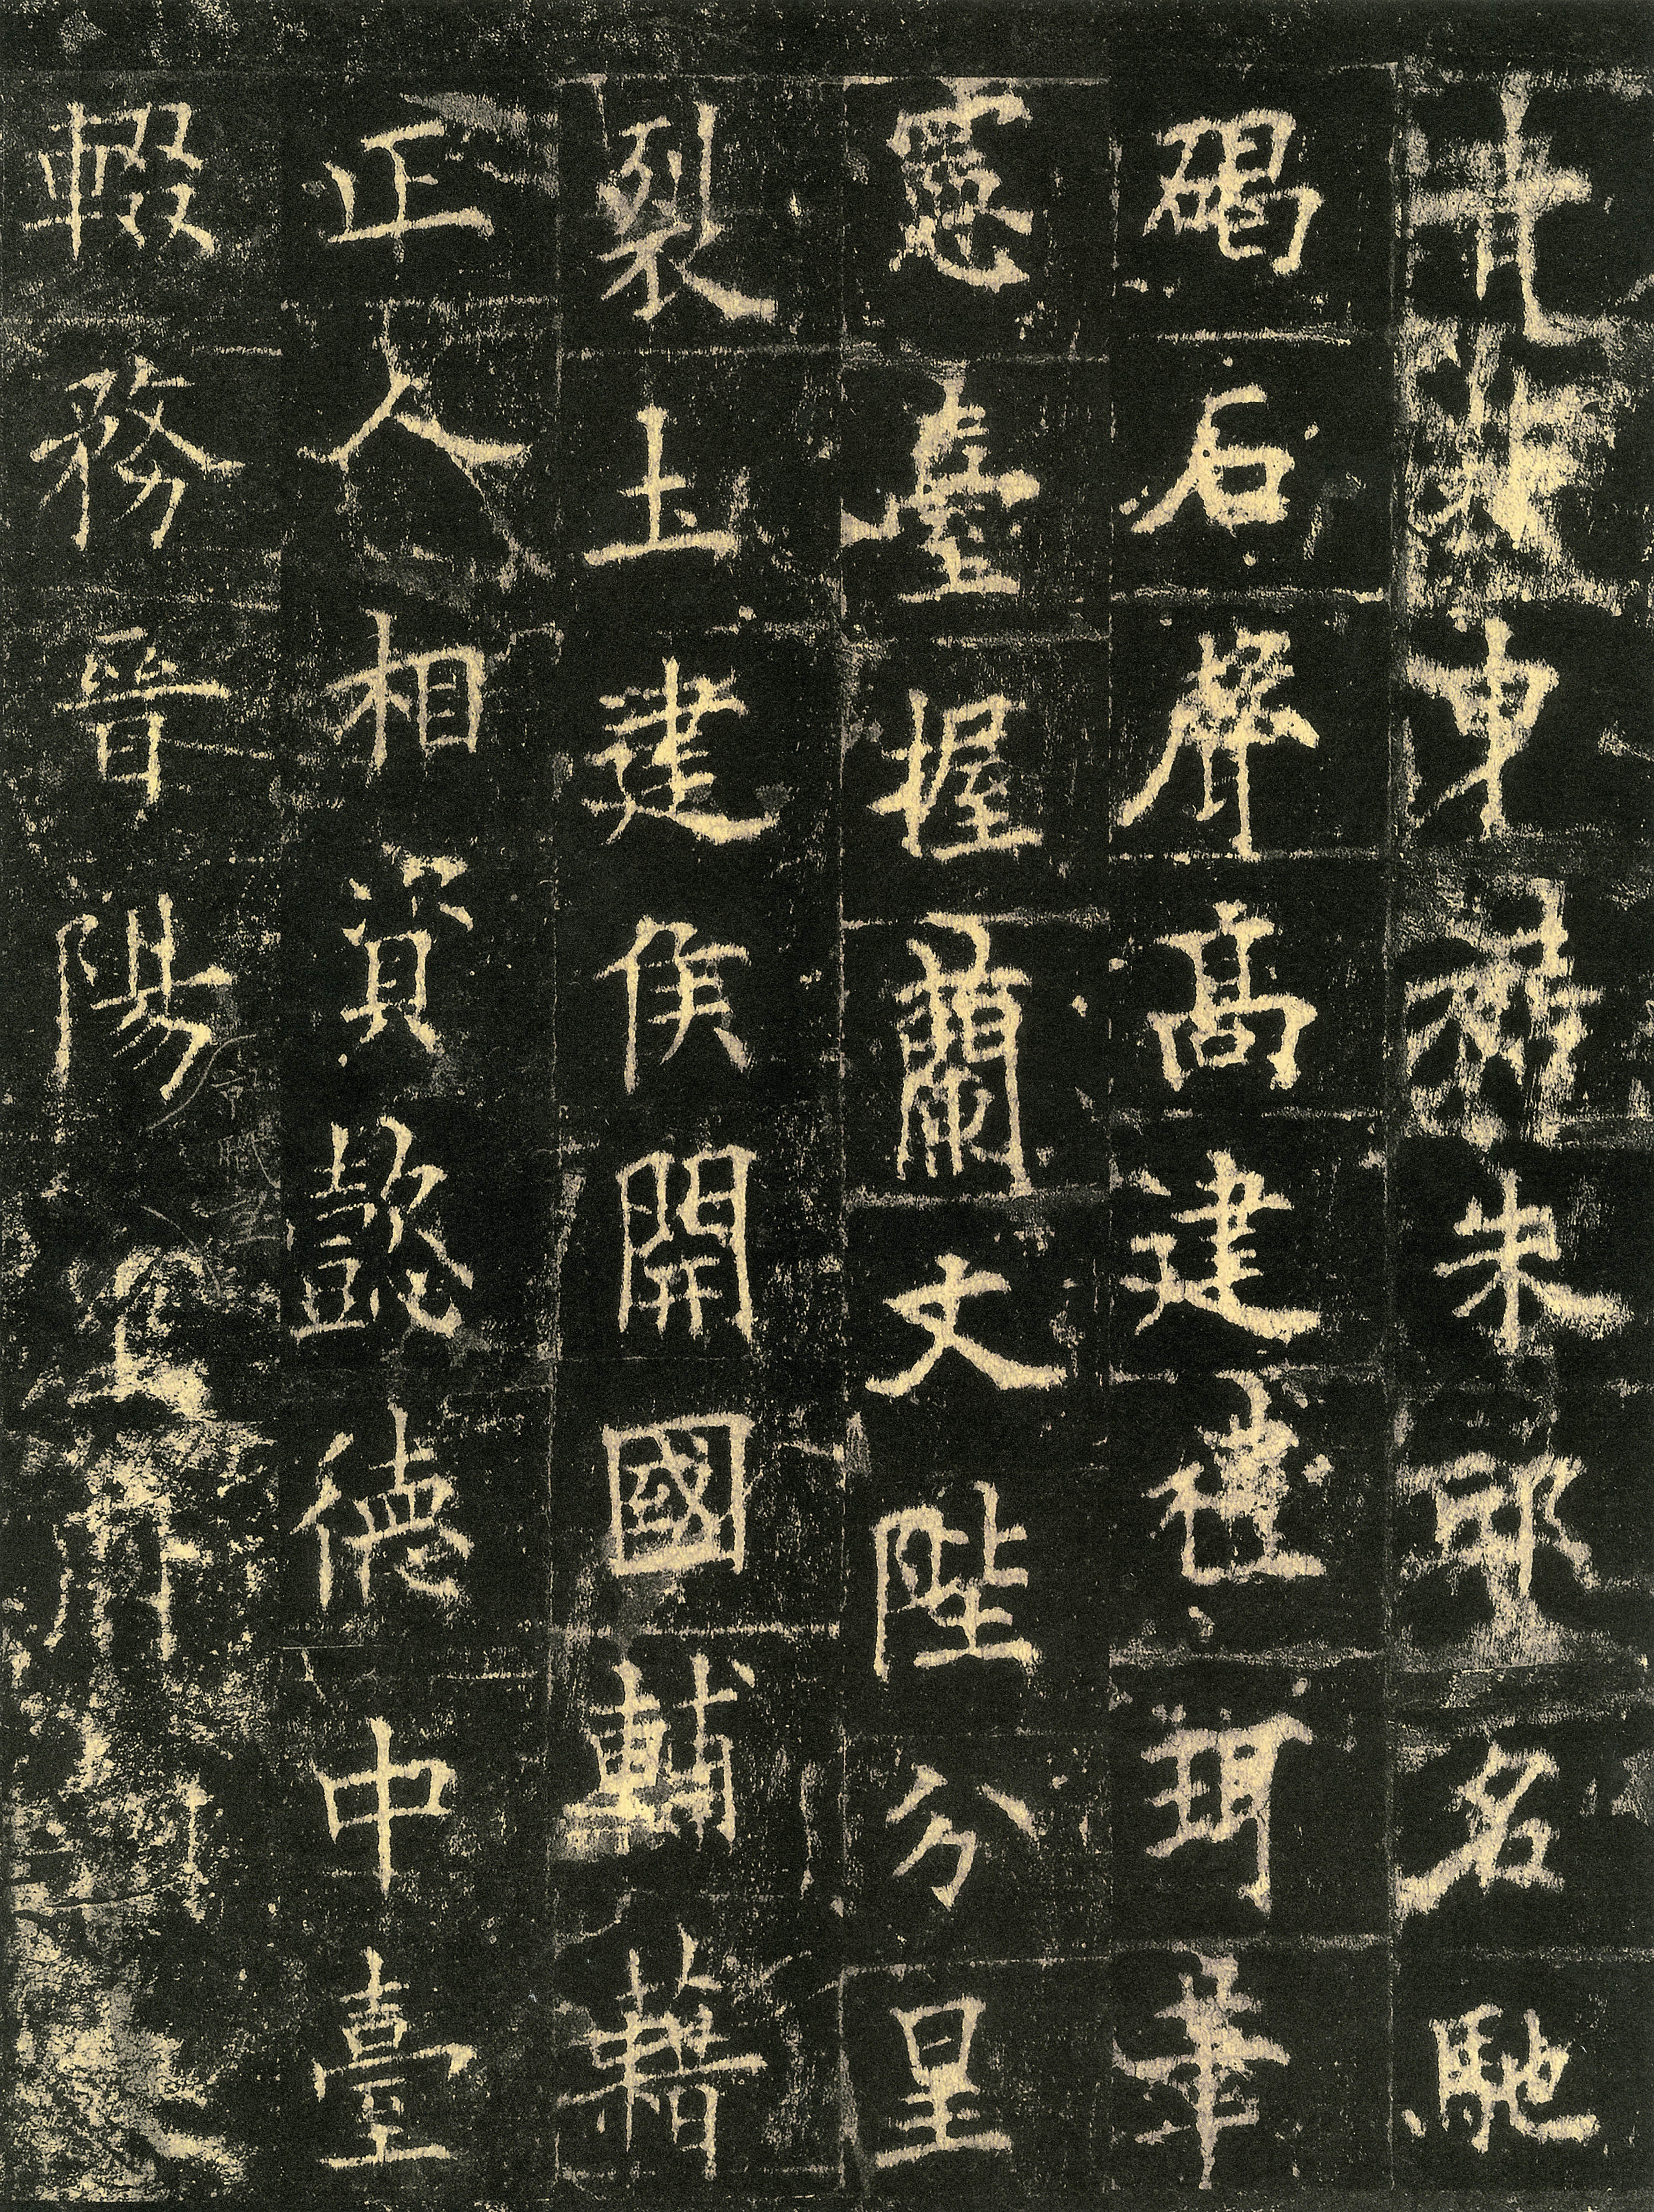 申朱邪名馳
碣石聲高建禮珥筆
憲臺握蘭文陛分星
裂土建侯開國輔藉
正人相資懿德中臺
輟務晉陽